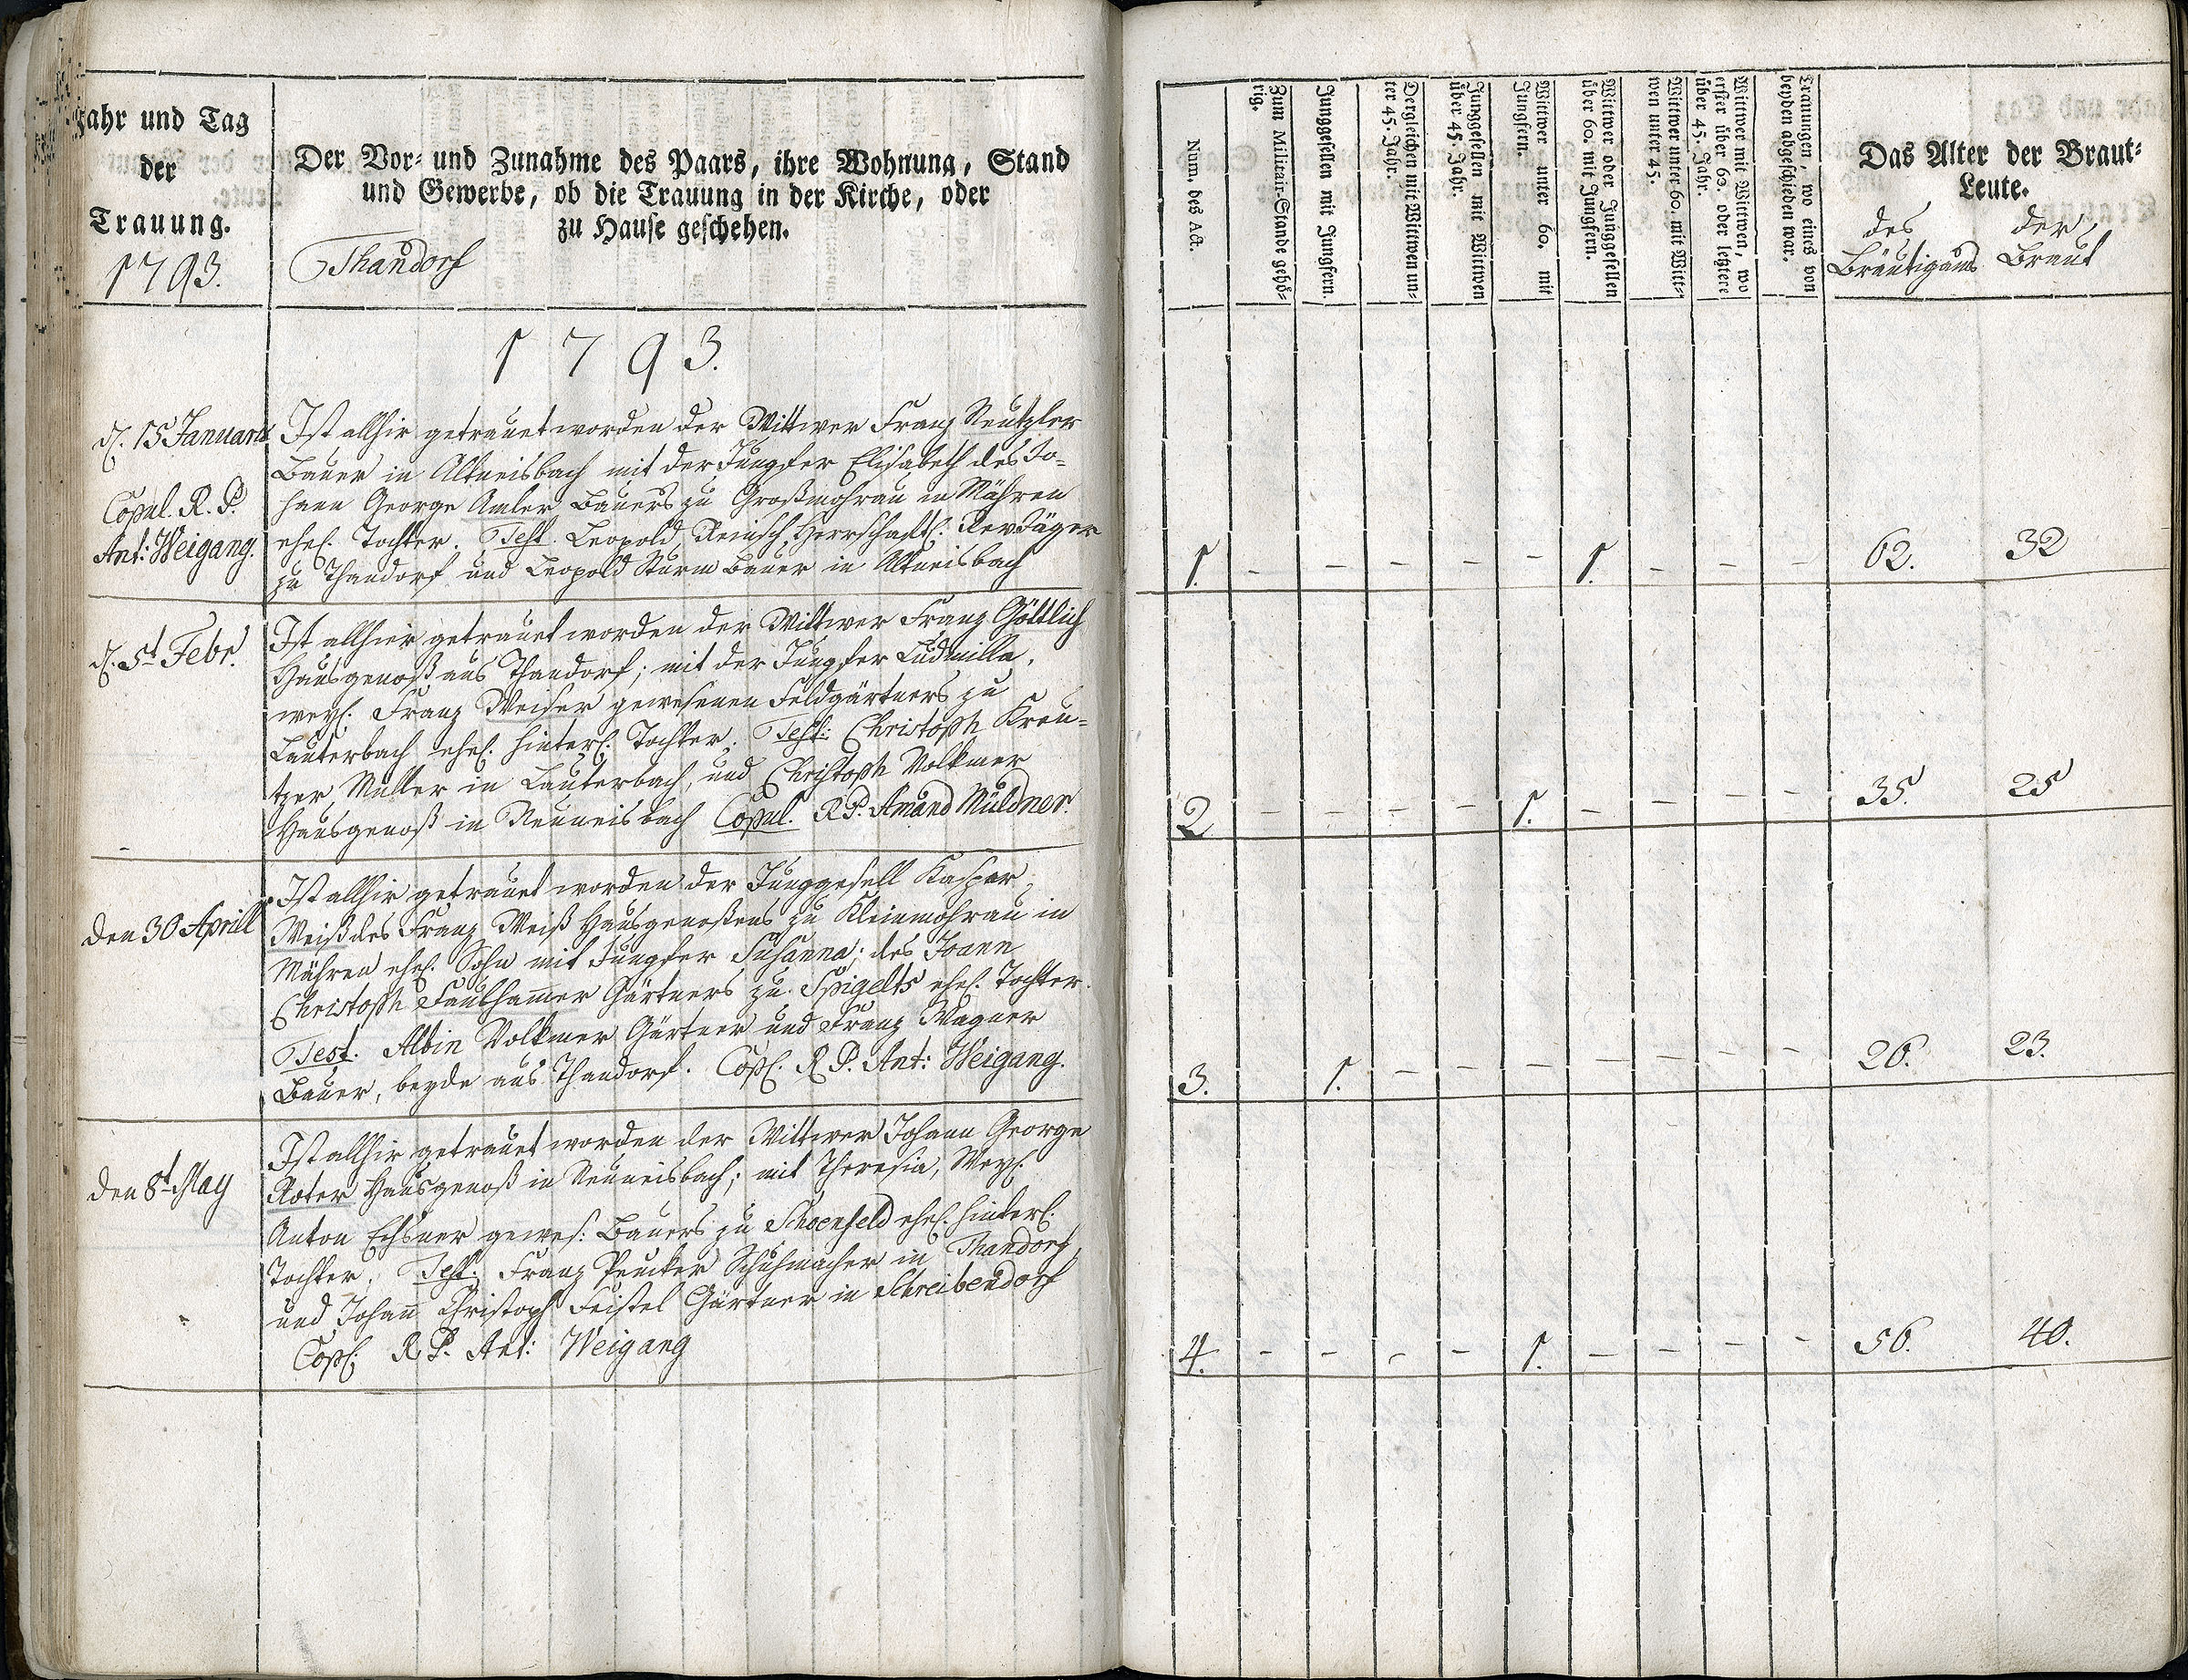 Jahr und Tag
der
Trauung.
1793.
Der Vor- und Zunahme des Paars, ihre Wohnung, Stand
und Gewerbe, ob die Trauung in der Kirche, oder
zu Hause geschehen.
Thandorf
1793.
d. 15 Januarii
Copul. R. P.
Ant: Weigang.
Ist allhir getrauet worden der Wittwer Franz Neutzler
Bauer in Altneisbach mit der Jungfer Elisabeth des Jo-
hann George Amler Bauers zu Großmohrau in Mähren
ehel. Tochter. Test. Leopold Reinsch Herrschaftl: RevJäger
zu Thandorf und Leopold Sturm Bauer in Altneisbach
d. 5t Febr.
Ist allhier getrauet worden der Wittwer Franz Göttlich
Hausgenoß aus Thandorf; mit der Jungfer Ludmilla,
weyl. Franz Weiser gewesenen Feldgärtners zu
Lauterbach ehel. hinterl. Tochter. Test: Christoph Kreu-
tzer Müller in Lauterbach, und Christoph Volkmer
Hausgenoß in Neuneisbach Copul. R P. Amand Müldner.
den 30 Aprill
Ist allhir getrauet worden der Junggesell Kaspar
Weiß des Franz Weiß Hausgenoßens zu Kleinmohrau in
Mähren ehel. Sohn mit Jungfer Susanna; des Joann
Christoph Faulhamer Gärtners zu Spigelts ehel. Tochter.
Test. Albin Volkmer Gärtner und Franz Wagner
Bauer, beyde aus Thandorf. Copl. R P. Ant: Weigang.
den 8t May
Ist allhir getrauet worden der Wittwer Johann George
Roter Hausgenoß in Neuneisbach; mit Theresia, Weyl.
Anton Echsner gewes: Bauers zu Schoenfeld ehel. hinterl.
Tochter. Test: Franz Peucker Schuhmacher in Thandorf,
und Johan Christoph Feistel Gärtner in Schreibendorf
Copl. R P. Ant: Weigang
Num. des Act.
Zum Militair-Stande gehö-
rig.
Junggesellen mit Jungfern.
Dergleichen mit Wittwen un-
ter 45. Jahr.
Junggesellen mit Wittwen
über 45. Jahr.
Wittwer unter 60. mit
Jungfern.
Wittwer oder Junggesellen
über 60. mit Jungfern.
Wittwer unter 60. mit Witt-
wen unter 45.
Wittwer mit Wittwen, wo
erster über 60. oder letztere
über 45. Jahr.
Trauungen, wo eines von
beyden abgeschieden war.
Das Alter der Braut-
Leute.
des der
Bräutigams Braut
1. - - - - - 1. - - - 62. 32
2 - - - - 1. - - - - 35. 25
3. 1. - - - - - - - 26. 23.
4. - - - - 1. - - - - 56. 40.